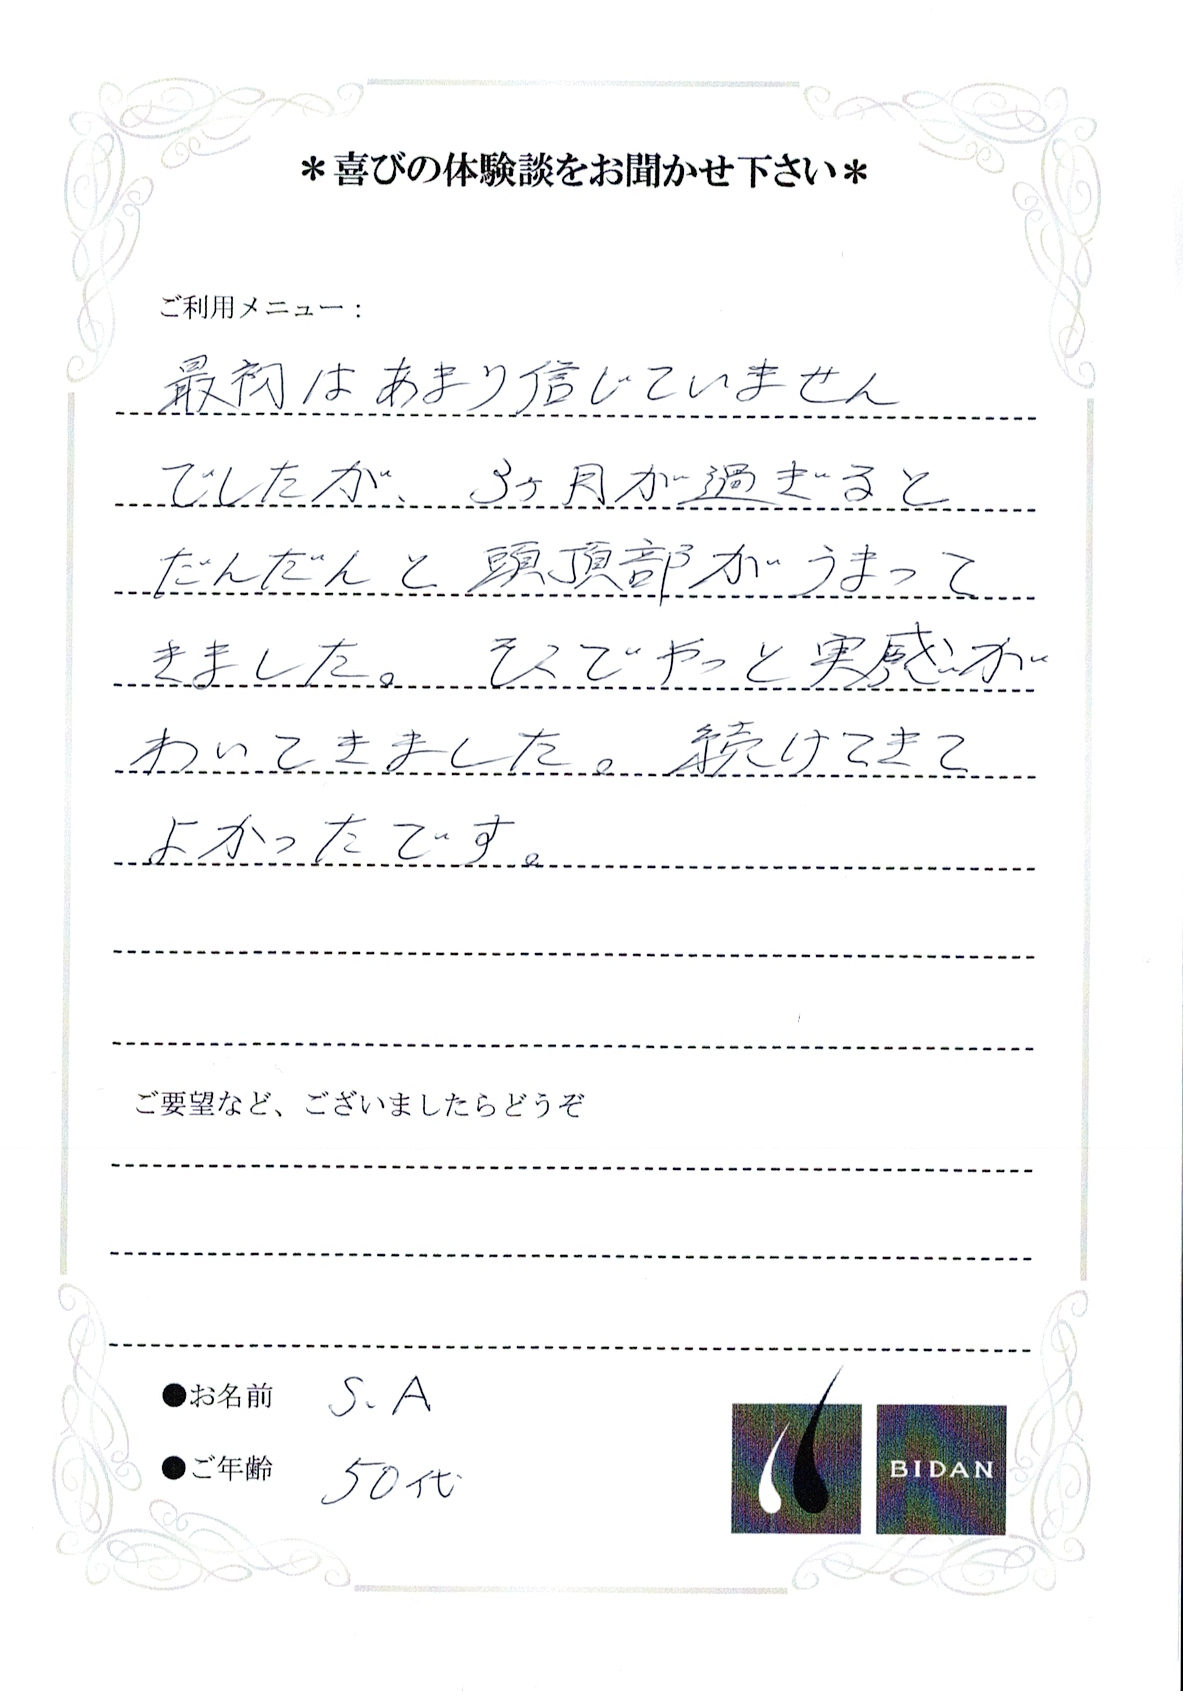 ＊喜びの体験談をお聞かせ下さい＊
ご利用メニュー：
最初はあまり信じていません
でしたが、3ヶ月が過ぎると
だんだんと頭頂部がうまって
きました。そこでやっと実感が
わいてきました。続けてきて
よかったです。
ご要望など、ございましたらどうぞ
●お名前 S.A
●ご年齢 50代
BIDAN